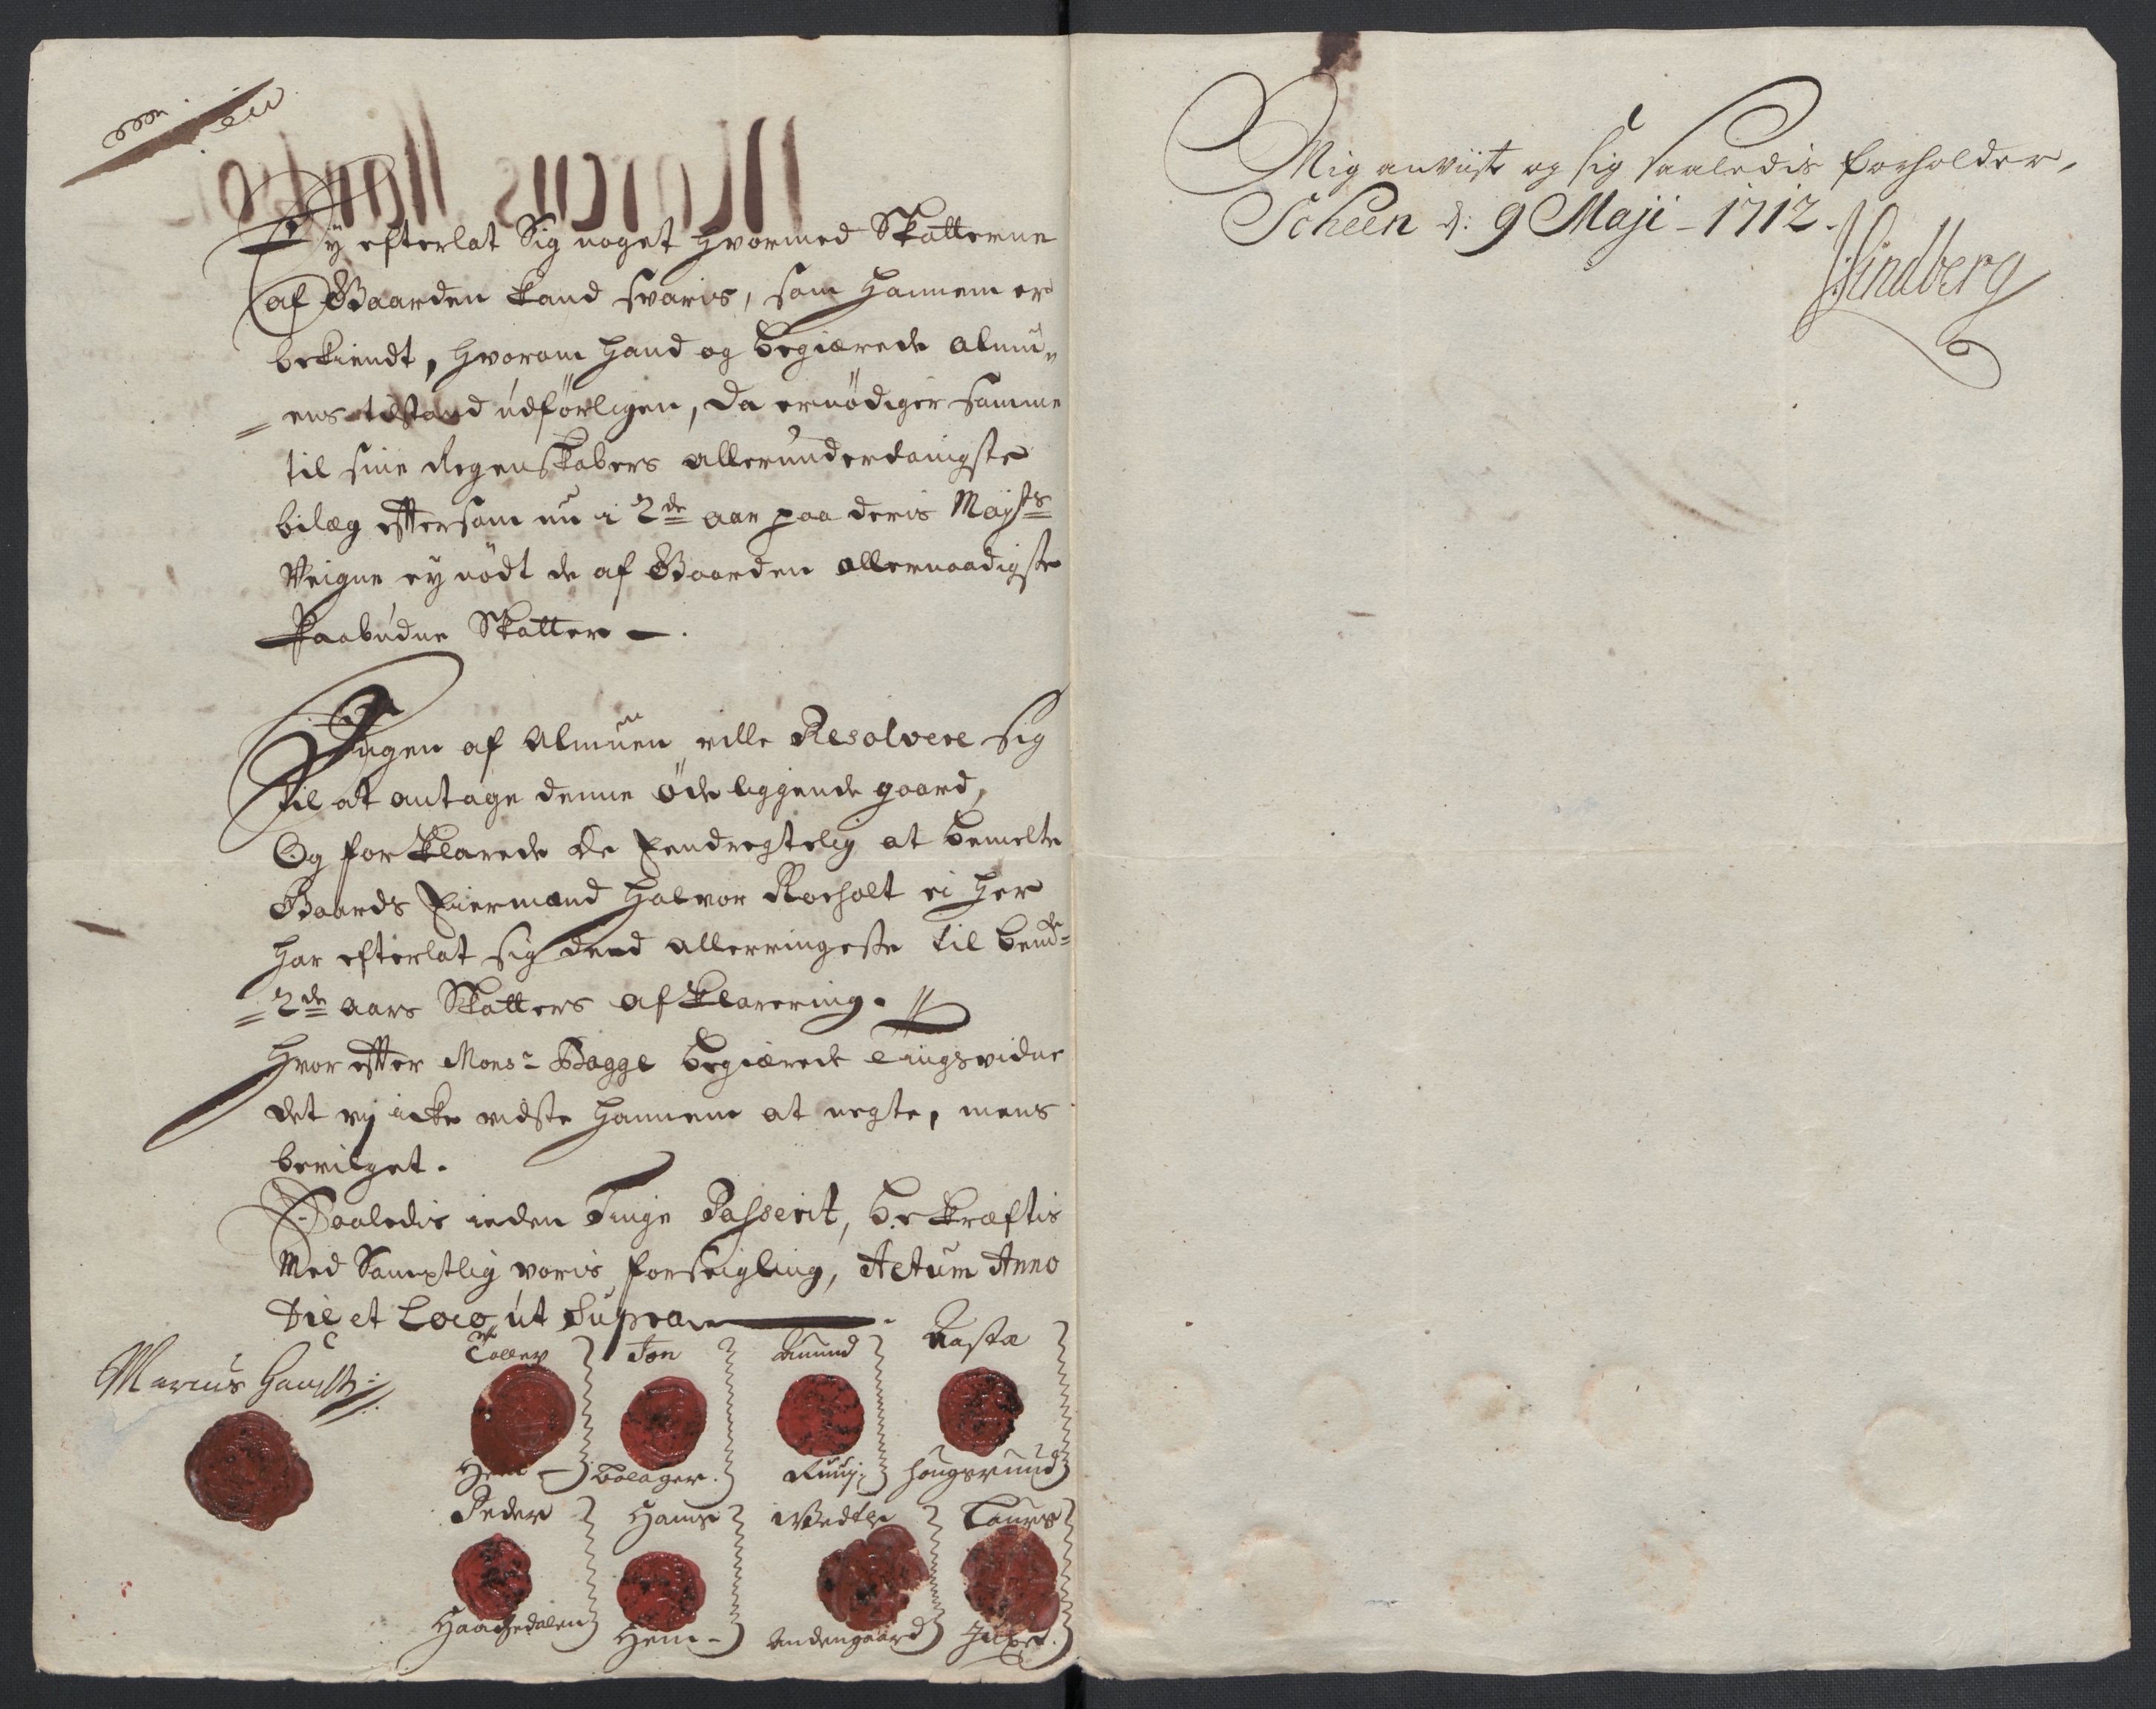 Ey efterlat Sig noget hvormed Skatterne
af Gaarden kand svaris, som hannem er
bekiendt, hvorom hand og begiærede almu-
ens tilstand udförligen, da ernödiger samme
til sine Regenskabers allerunderdanigste
bilæg eftersom nu i 2de aar paa deris Mayts
Veigne ey nödt de af Gaarden allernaadigste
Paabudne Skatter.
Ingen af Almuen ville Resolvere sig
til at antage denne öde liggende gaard,
Og forklarede de Eendregtelig at bemelte
Gaards Eiermand Halvor Roeholt ei her
har efterlat sig deed allerringeste til bemte
2de aars Skatters afklarering.
Hvor efter Monsr Bagge begiærede tingsvidne
det vj icke vidste hannem at negte, mens
bevilget.
Saaledis inden Tinge Passerit, bekræftis
Med Samptlig voris forseigling, Actum Anno
Die et Loco ut Supra
Marcus
Tollev Jon Amund Aasta
Hem Bolager. Haugerund
Peder Hans Wedle Laurs
Haatvedalen Hem Andengaard
Mig anviist og sig saaledis forholder,
Scheen d: 9 Maji - 1712.
Lindberg